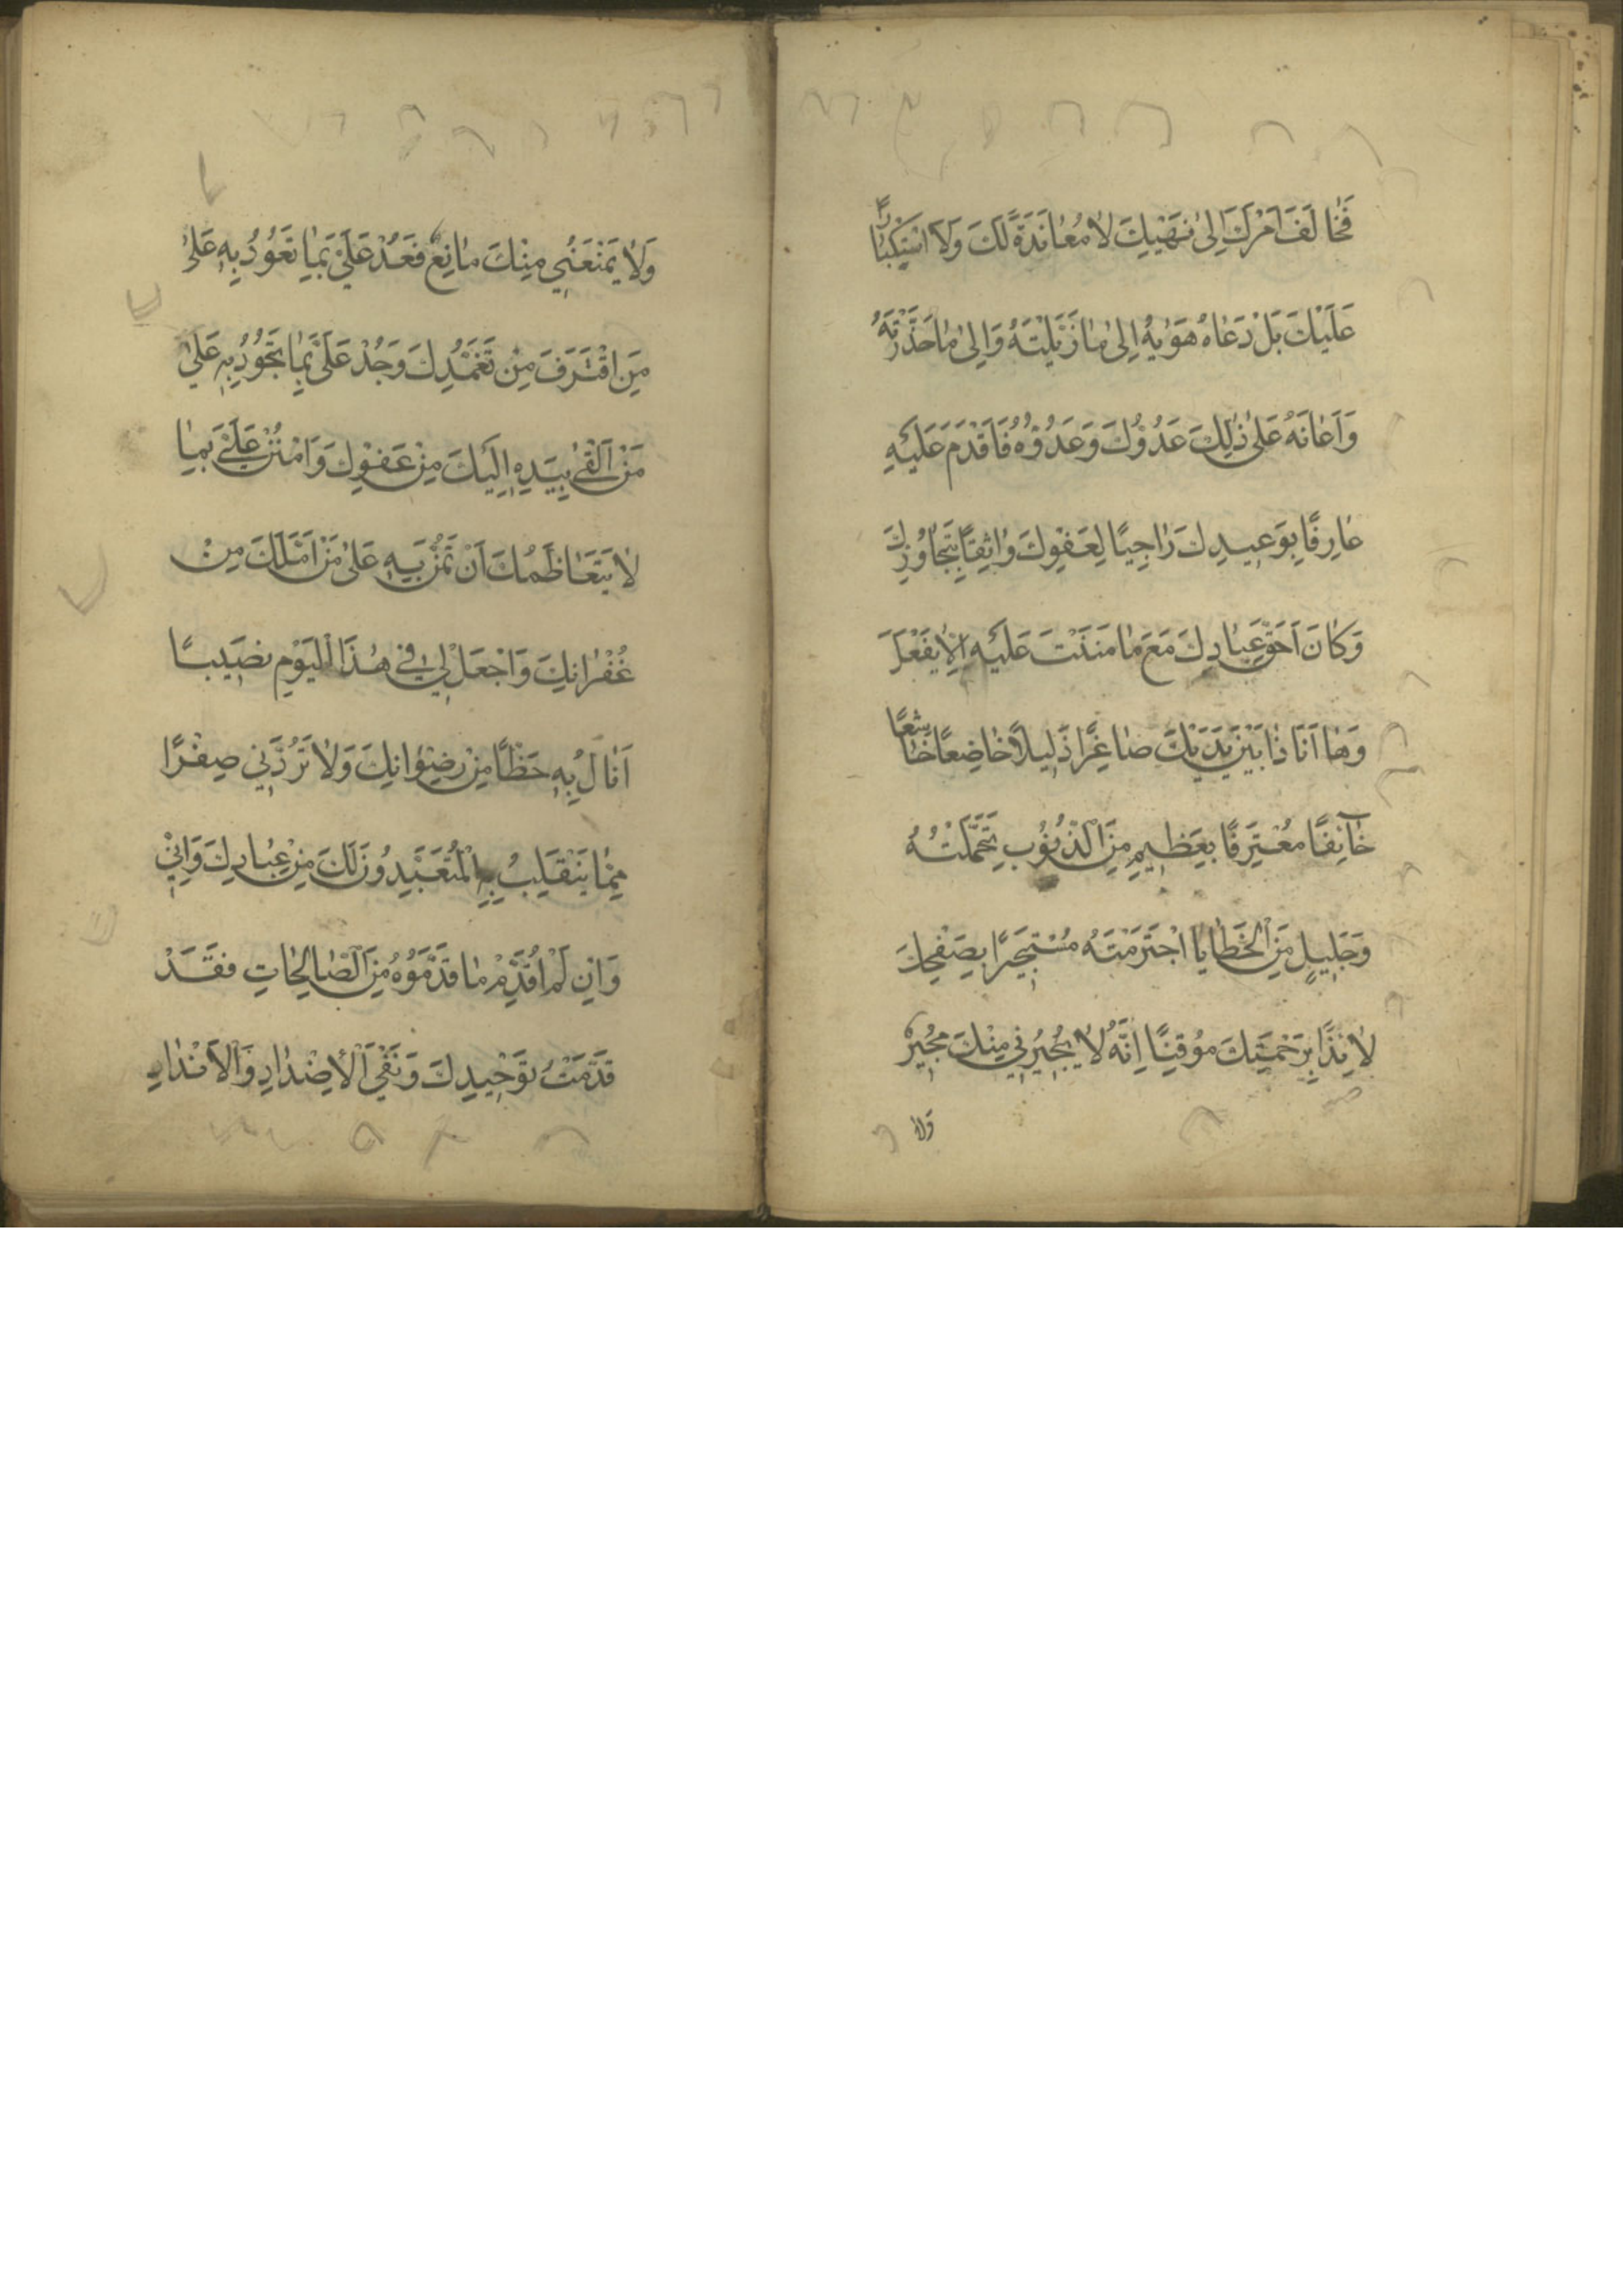 فَخَالَفَ اَمْرَكَ اِلىٰ نَهْيِكَ لَا مُعَانَدَةً لَكَ وَلَا اسْتِكْبَارًا
عَلَيْكَ بَلْ دَعَاهُ هَوٰيهُ اِلىٰ مَا زَيَّلْتَهُ وَاِلىٰ مَا حَذَّرْتَهُ
وَاَعَانَهُ عَلىٰ ذٰلِكَ عَدُوُّكَ وَعَدُوُّهُ فَاَقْدَمَ عَلَيْهِ
عَارِفًا بِوَعِيدِكَ رَاجِيًا لِعَفْوِكَ وَاثِقًا بِتَجَاوُزِكَ
وَكَانَ اَحَقَّ عِبَادِكَ مَعَ مَا مَنَنْتَ عَلَيْهِ اَلَّا يَفْعَلَ
وَهَا اَنَا ذَا بَيْنَ يَدَيْكَ صَاغِرًا ذَلِيلًا خَاضِعًا خَاشِعًا
خَآئِفًا مُعْتَرِفًا بِعَظِيمٍ مِنَ الذُّنُوبِ تَحَمَّلْتُهُ
وَجَلِيلٍ مِنَ الْخَطَايَا اجْتَرَمْتُهُ مُسْتَجِيرًا بِصَفْحِكَ
لَائِذًا بِرَحْمَتِكَ مُوقِنًا اِنَّهُ لَا يُجِيرُنِي مِنْكَ مُجِيرٌ
وَلَا
وَلَا يَمْنَعُنِي مِنْكَ مَانِعٌ فَعُدْ عَلَيَّ بِمَا تَعُودُ بِهِ عَلىٰ
مَنِ اقْتَرَفَ مِنْ تَغَمُّدِكَ وَجُدْ عَلَيَّ بِمَا تَجُودُ بِهِ عَلىٰ
مَنْ اَلْقىٰ بِيَدِهِ اِلَيْكَ مِنْ عَفْوِكَ وَامْنُنْ عَلَيَّ بِمَا
لَا يَتَعَاظَمُكَ اَنْ تَمُنَّ بِهِ عَلىٰ مَنْ اَمَّلَكَ مِنْ
غُفْرَانِكَ وَاجْعَلْ لِي فِي هٰذَا الْيَوْمِ نَصِيبًا
اَنَالُ بِهِ حَظًّا مِنْ رِضْوَانِكَ وَلَا تَرُدَّنِي صِفْرًا
مِمَّا يَنْقَلِبُ بِهِ الْمُتَعَبِّدُونَ لَكَ مِنْ عِبَادِكَ وَاِنِّي
وَاِنْ لَمْ اُقَدِّمْ مَا قَدَّمُوهُ مِنَ الصَّالِحَاتِ فَقَدْ
قَدَّمْتُ تَوْحِيدَكَ وَنَفْيَ الْاَضْدَادِ وَالْاَنْدَادِ